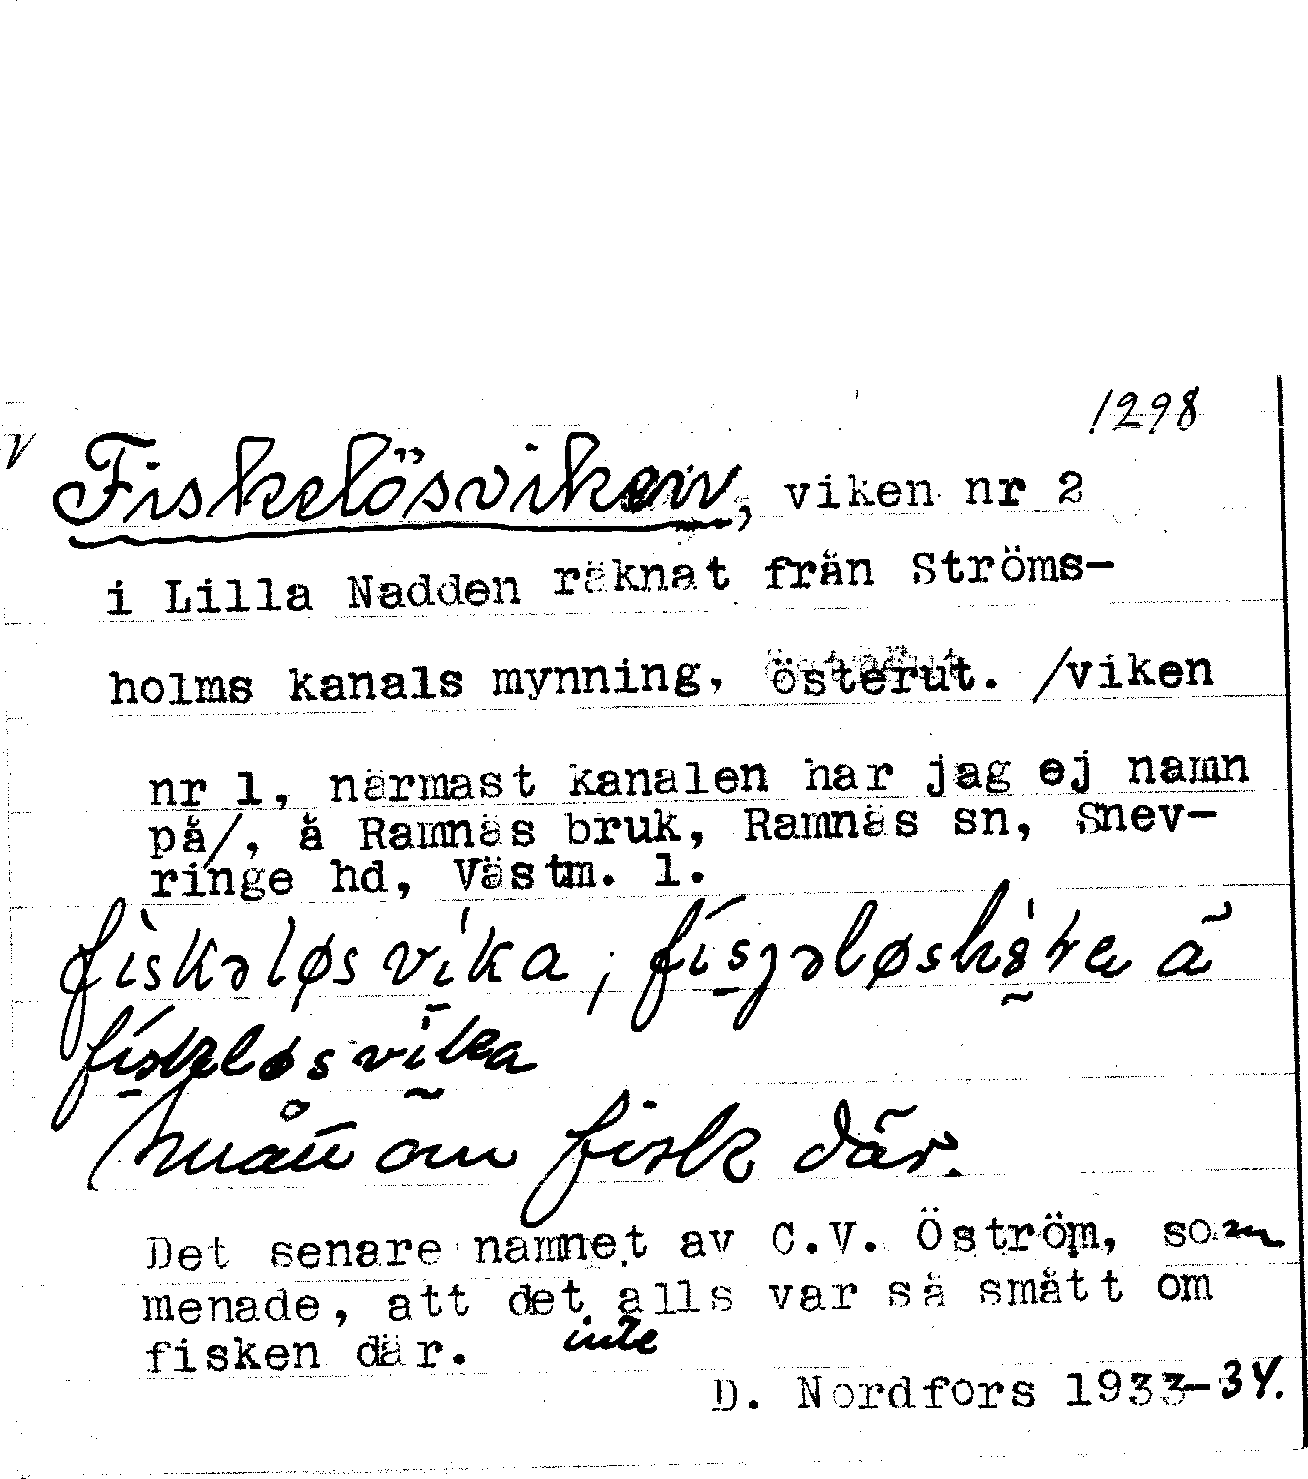 1298
V Fiskelösviken, viken nr 2
i Lilla Nadden räknat från Ströms-
holms kanals mynning, österut. /viken
nr 1, närmast kanalen har jag ej namn
på/, å Ramnäs bruk, Ramnäs sn, Snev-
ringe hd, Västm. l.
fiskəløsvika,
fiskəløsvika
om fisk där.
Det senare namnet av C.V. Öström, som
menade, att det alls var så smått om
inte
fisken där.
D. Nordfors 1933-34.